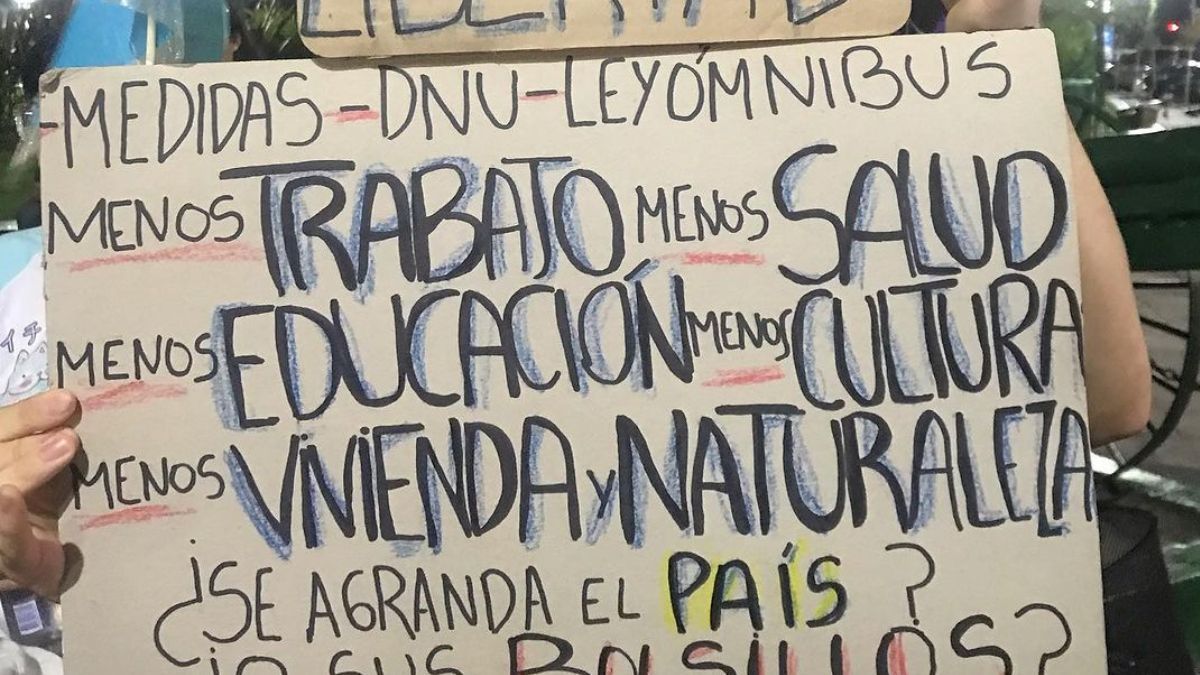 LIBERTAD
-MEDIDAS-DNU-LEYÓMNIBUS
MENOS TRABAJO MENOS SALUD
MENOS EDUCACIÓN MENOS CULTURA
MENOS VIVIENDA Y NATURALEZA
¿SE AGRANDA EL PAÍS?
¿O SUS BOLSILLOS?
イチ